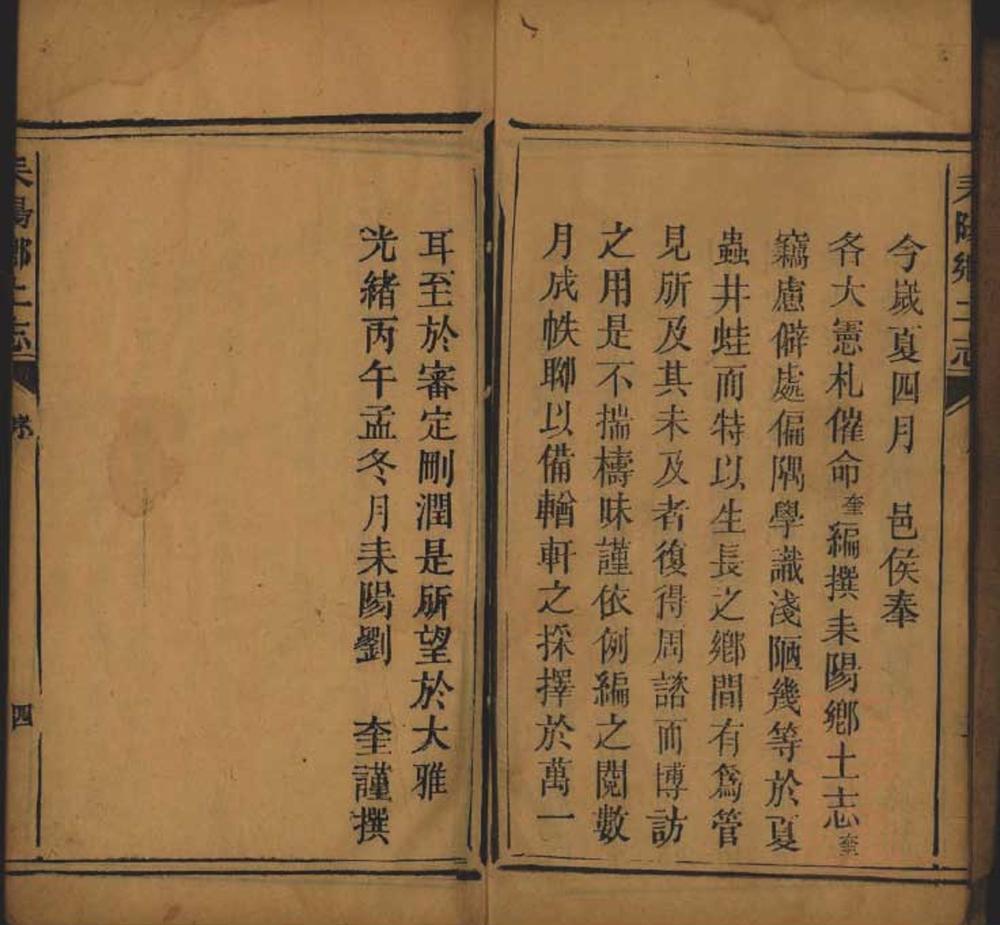 耒陽鄉土志
今嵗夏四月　邑侯奉
各大憲札催命奎編撰耒陽鄉土志奎
竊慮僻處偏隅學識淺陋幾等於夏
蟲井蛙而特以生長之鄉間有爲管
見所及其未及者復得周諮而博訪
之用是不揣檮昧謹依例編之閱數
月成帙聊以備輶軒之採擇於萬一
耳至於審定刪潤是所望於大雅
光緒丙午孟冬月耒陽劉　奎謹撰
耒陽鄉土志　序　四